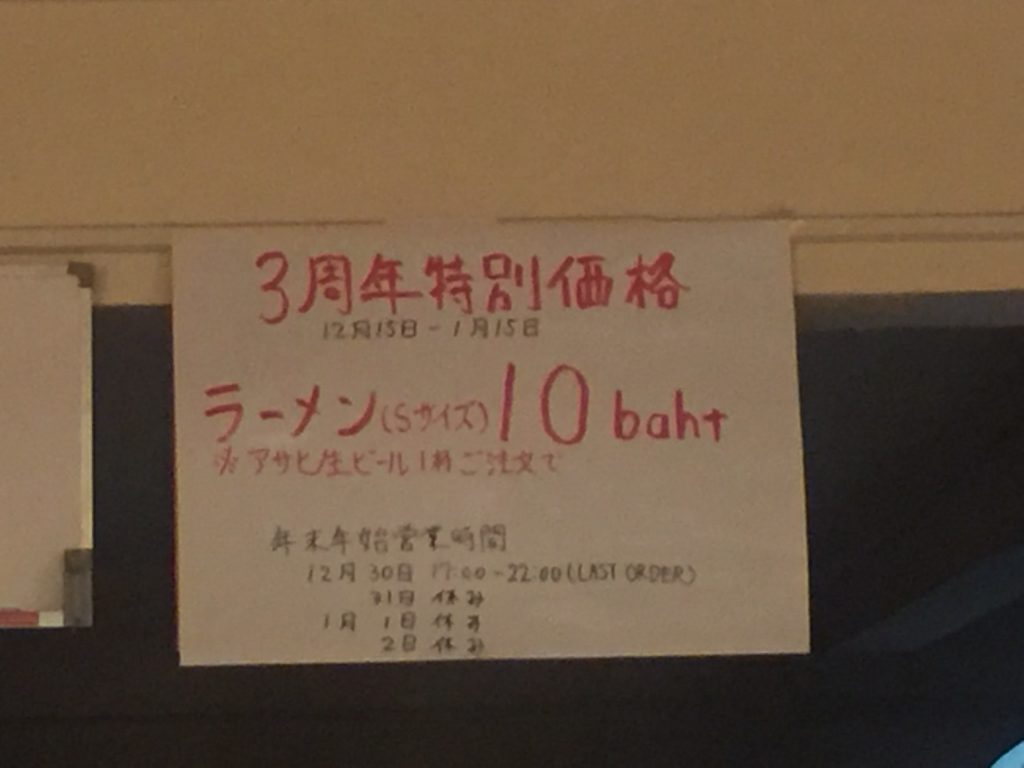 3周年特別価格
12月15日-1月15日
ラーメン(Sサイズ)10 baht
※アサヒ生ビール1杯ご注文で
年末年始営業時間
12月 30日 17:00-22:00(LAST ORDER)
31日 休み
1月 1日 休み
2日 休み